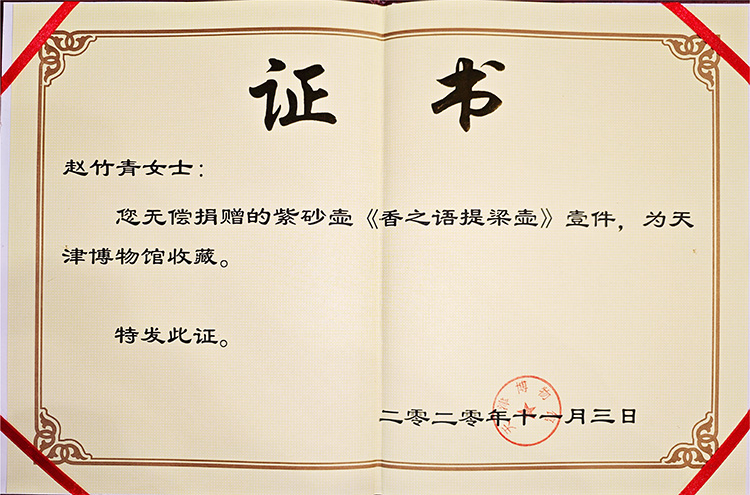 证书
赵竹青女士：
您无偿捐赠的紫砂壶《香之语提梁壶》壹件，为天
津博物馆收藏。
特发此证。
天津博物
二零二零年十一月三日